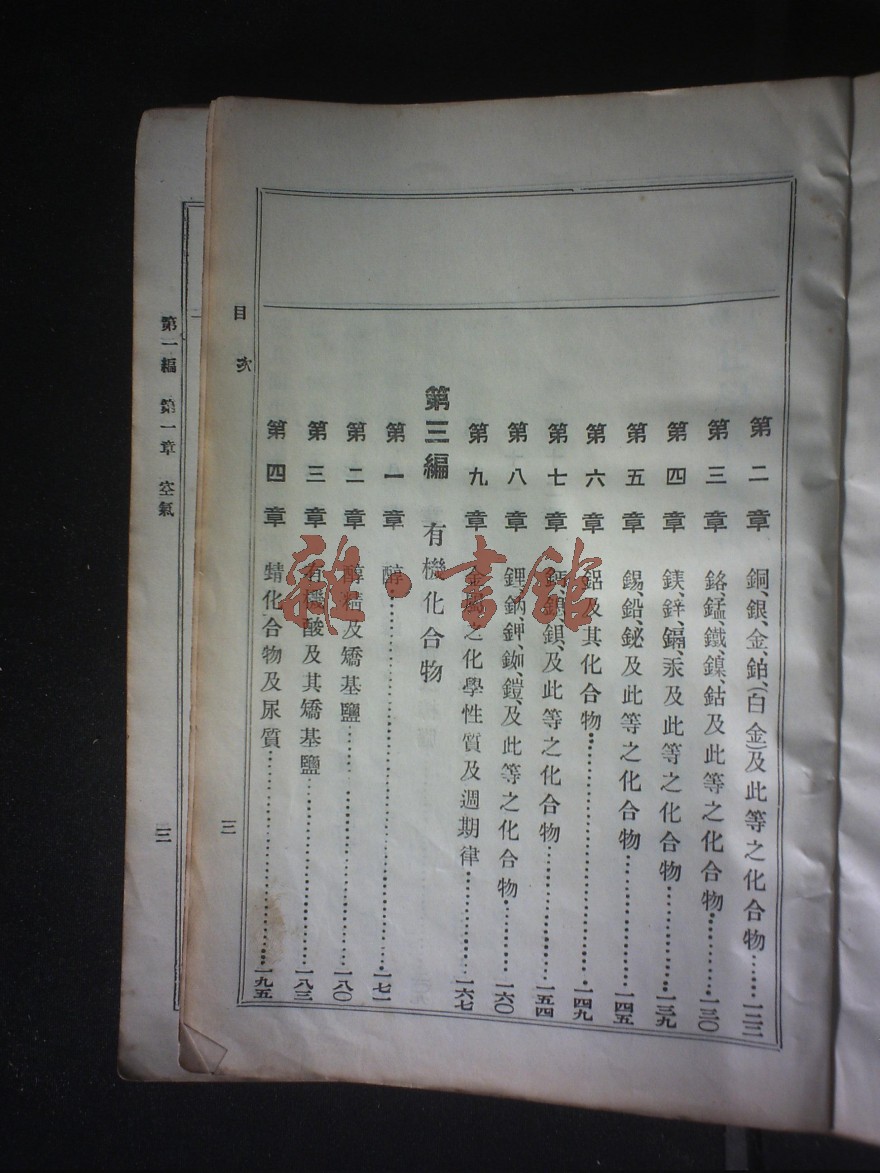 第二章 銅、銀、金、鉑、(白金)及此等之化合物……一二二
第三章 鉻、錳、鐵、鎳、鈷及此等之化合物……一三〇
第四章 鎂、鋅、鎘、汞及此等之化合物……一三九
第五章 錫、鉛、鉍及此等之化合物……一四五
第六章 鋁及其化合物……一四九
第七章 鈣、鍶、鋇、及此等之化合物……一五四
第八章 鋰、鈉、鉀、銣、鎧、及此等之化合物……一六〇
第九章 金屬之化學性質及週期律……一六七
第三編 有機化合物
第一章 醇……一七一
第二章 醇精及矯基鹽……一八〇
第三章 有機酸及其矯基鹽……一八三
第四章 蜻化合物及尿質……一九五
目次
三
第一編 第一章 空氣
三
雜·書館